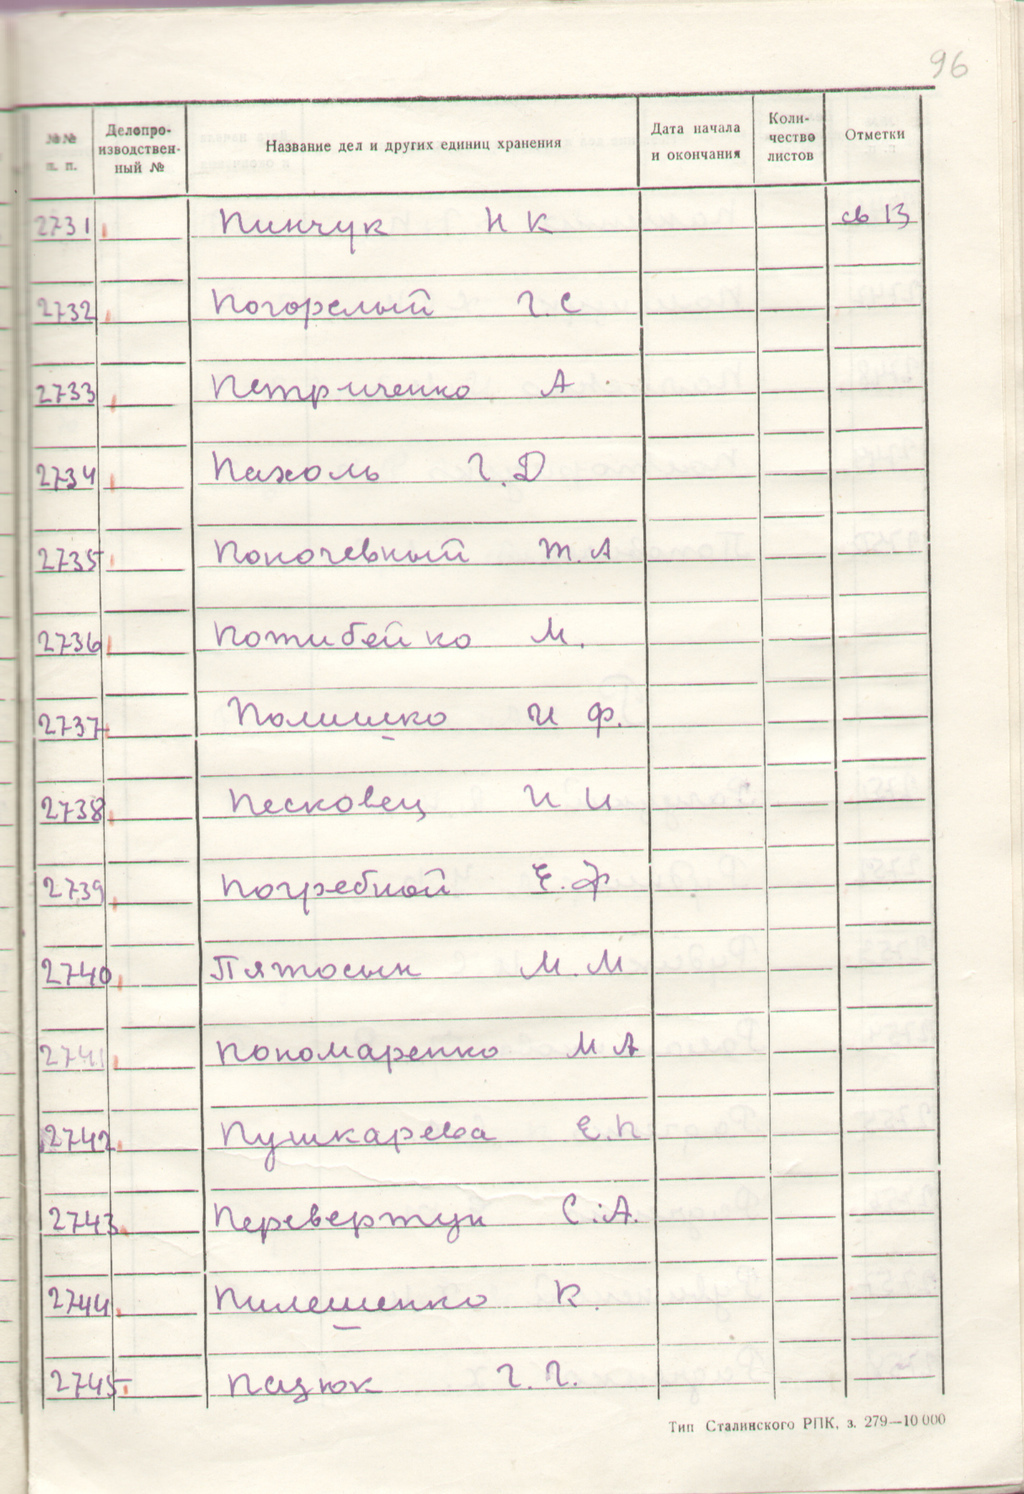 96
№№ п. п. Делопроизводственный № Название дел и других единиц хранения Дата начала и окончания Количество листов Отметки
2731 Пинчук Н К св 13
2732 Погорелый Г. С
2733 Петриченко А
2734 Пахоль Г. Д
2735 Поночевный Т. А
2736 Потибейко М.
2737 Полишко И Ф.
2738 Песковец И И
2739 Погребной Е. Ф
2740 Пятосын М. М
2741 Пономаренко М А
2742 Пушкарева Е. П
2743 Перевертун С. А.
2744 Пилешенко К.
2745 Пазюк Г. Г.
Тип Сталинского РПК, з. 279—10 000